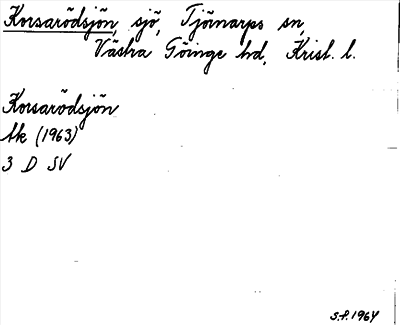 Korsarödsjön, sjö, Tjörnarps sn,
Västra Göinge hd, Krist. l.
Korsarödsjön
tk (1963)
3 D SV
S.f. 1964